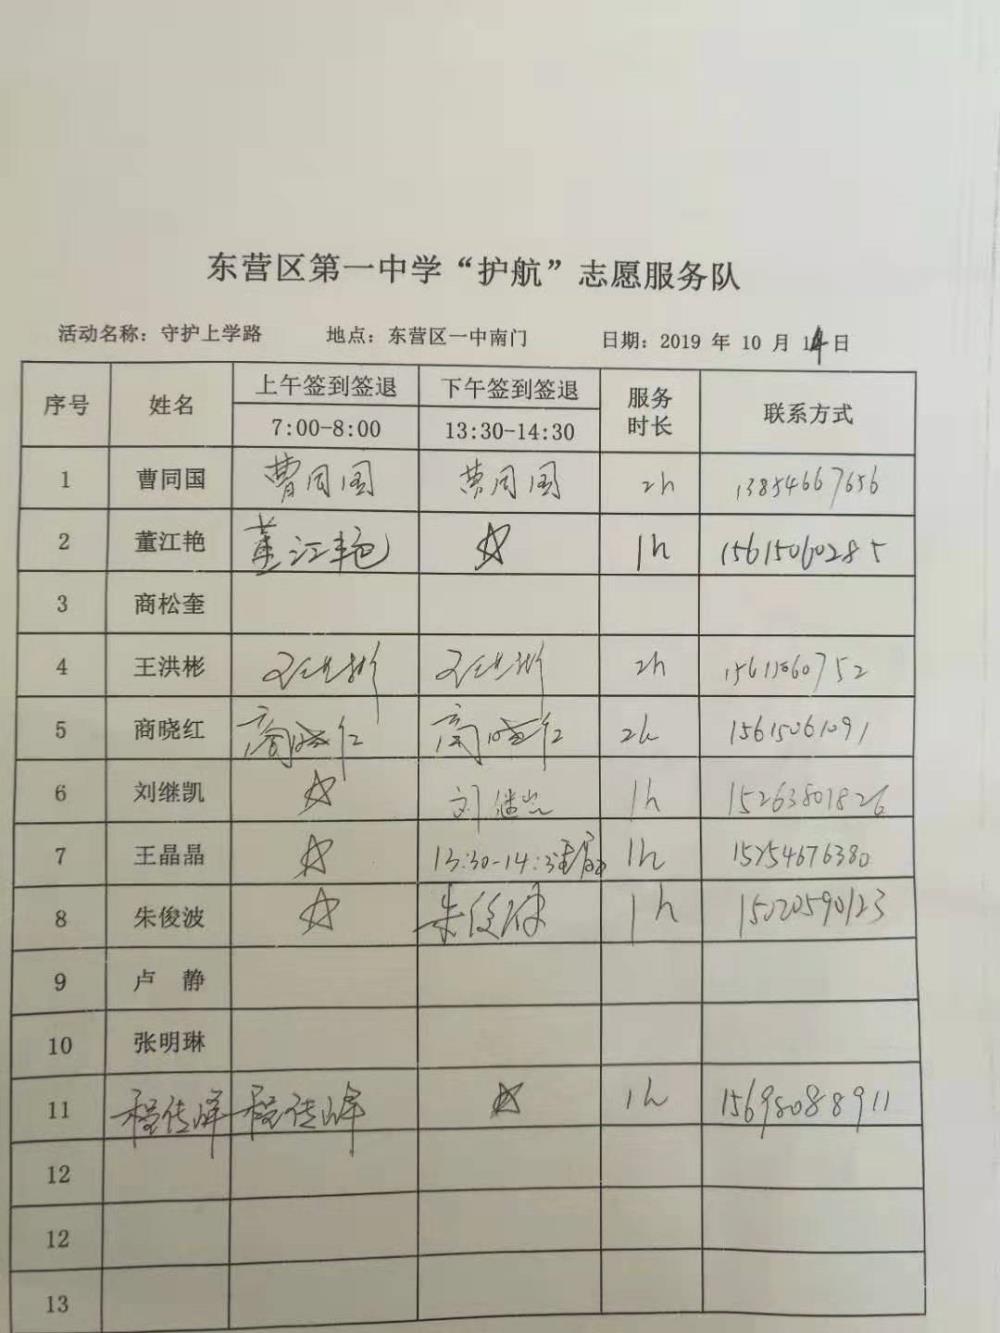 东营区第一中学“护航”志愿服务队
活动名称：守护上学路 地点：东营区一中南门 日期：2019 年 10 月 14 日
序号 姓名 上午签到签退 下午签到签退 服务时长 联系方式
7:00-8:00 13:30-14:30
1 曹同国 曹同国 曹同国 2h 13854667656
2 董江艳 董江艳 ☆ 1h 15615060285
3 商松奎
4 王洪彬 王洪彬 王洪彬 2h
5 商晓红 商晓红 商晓红 2h 15615061091
6 刘继凯 ☆ 刘继凯 1h 15263801826
7 王晶晶 ☆ 13:30-14:3 1h 15254676380
8 朱俊波 ☆ 朱俊波 1h 15020590123
9 卢 静
10 张明琳
11 程传峰 程传峰 ☆ 1h 15698088911
12
12
13